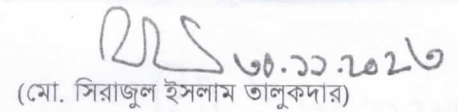 ৩০.১১.২০২৩
(মো. সিরাজুল ইসলাম তালুকদার)